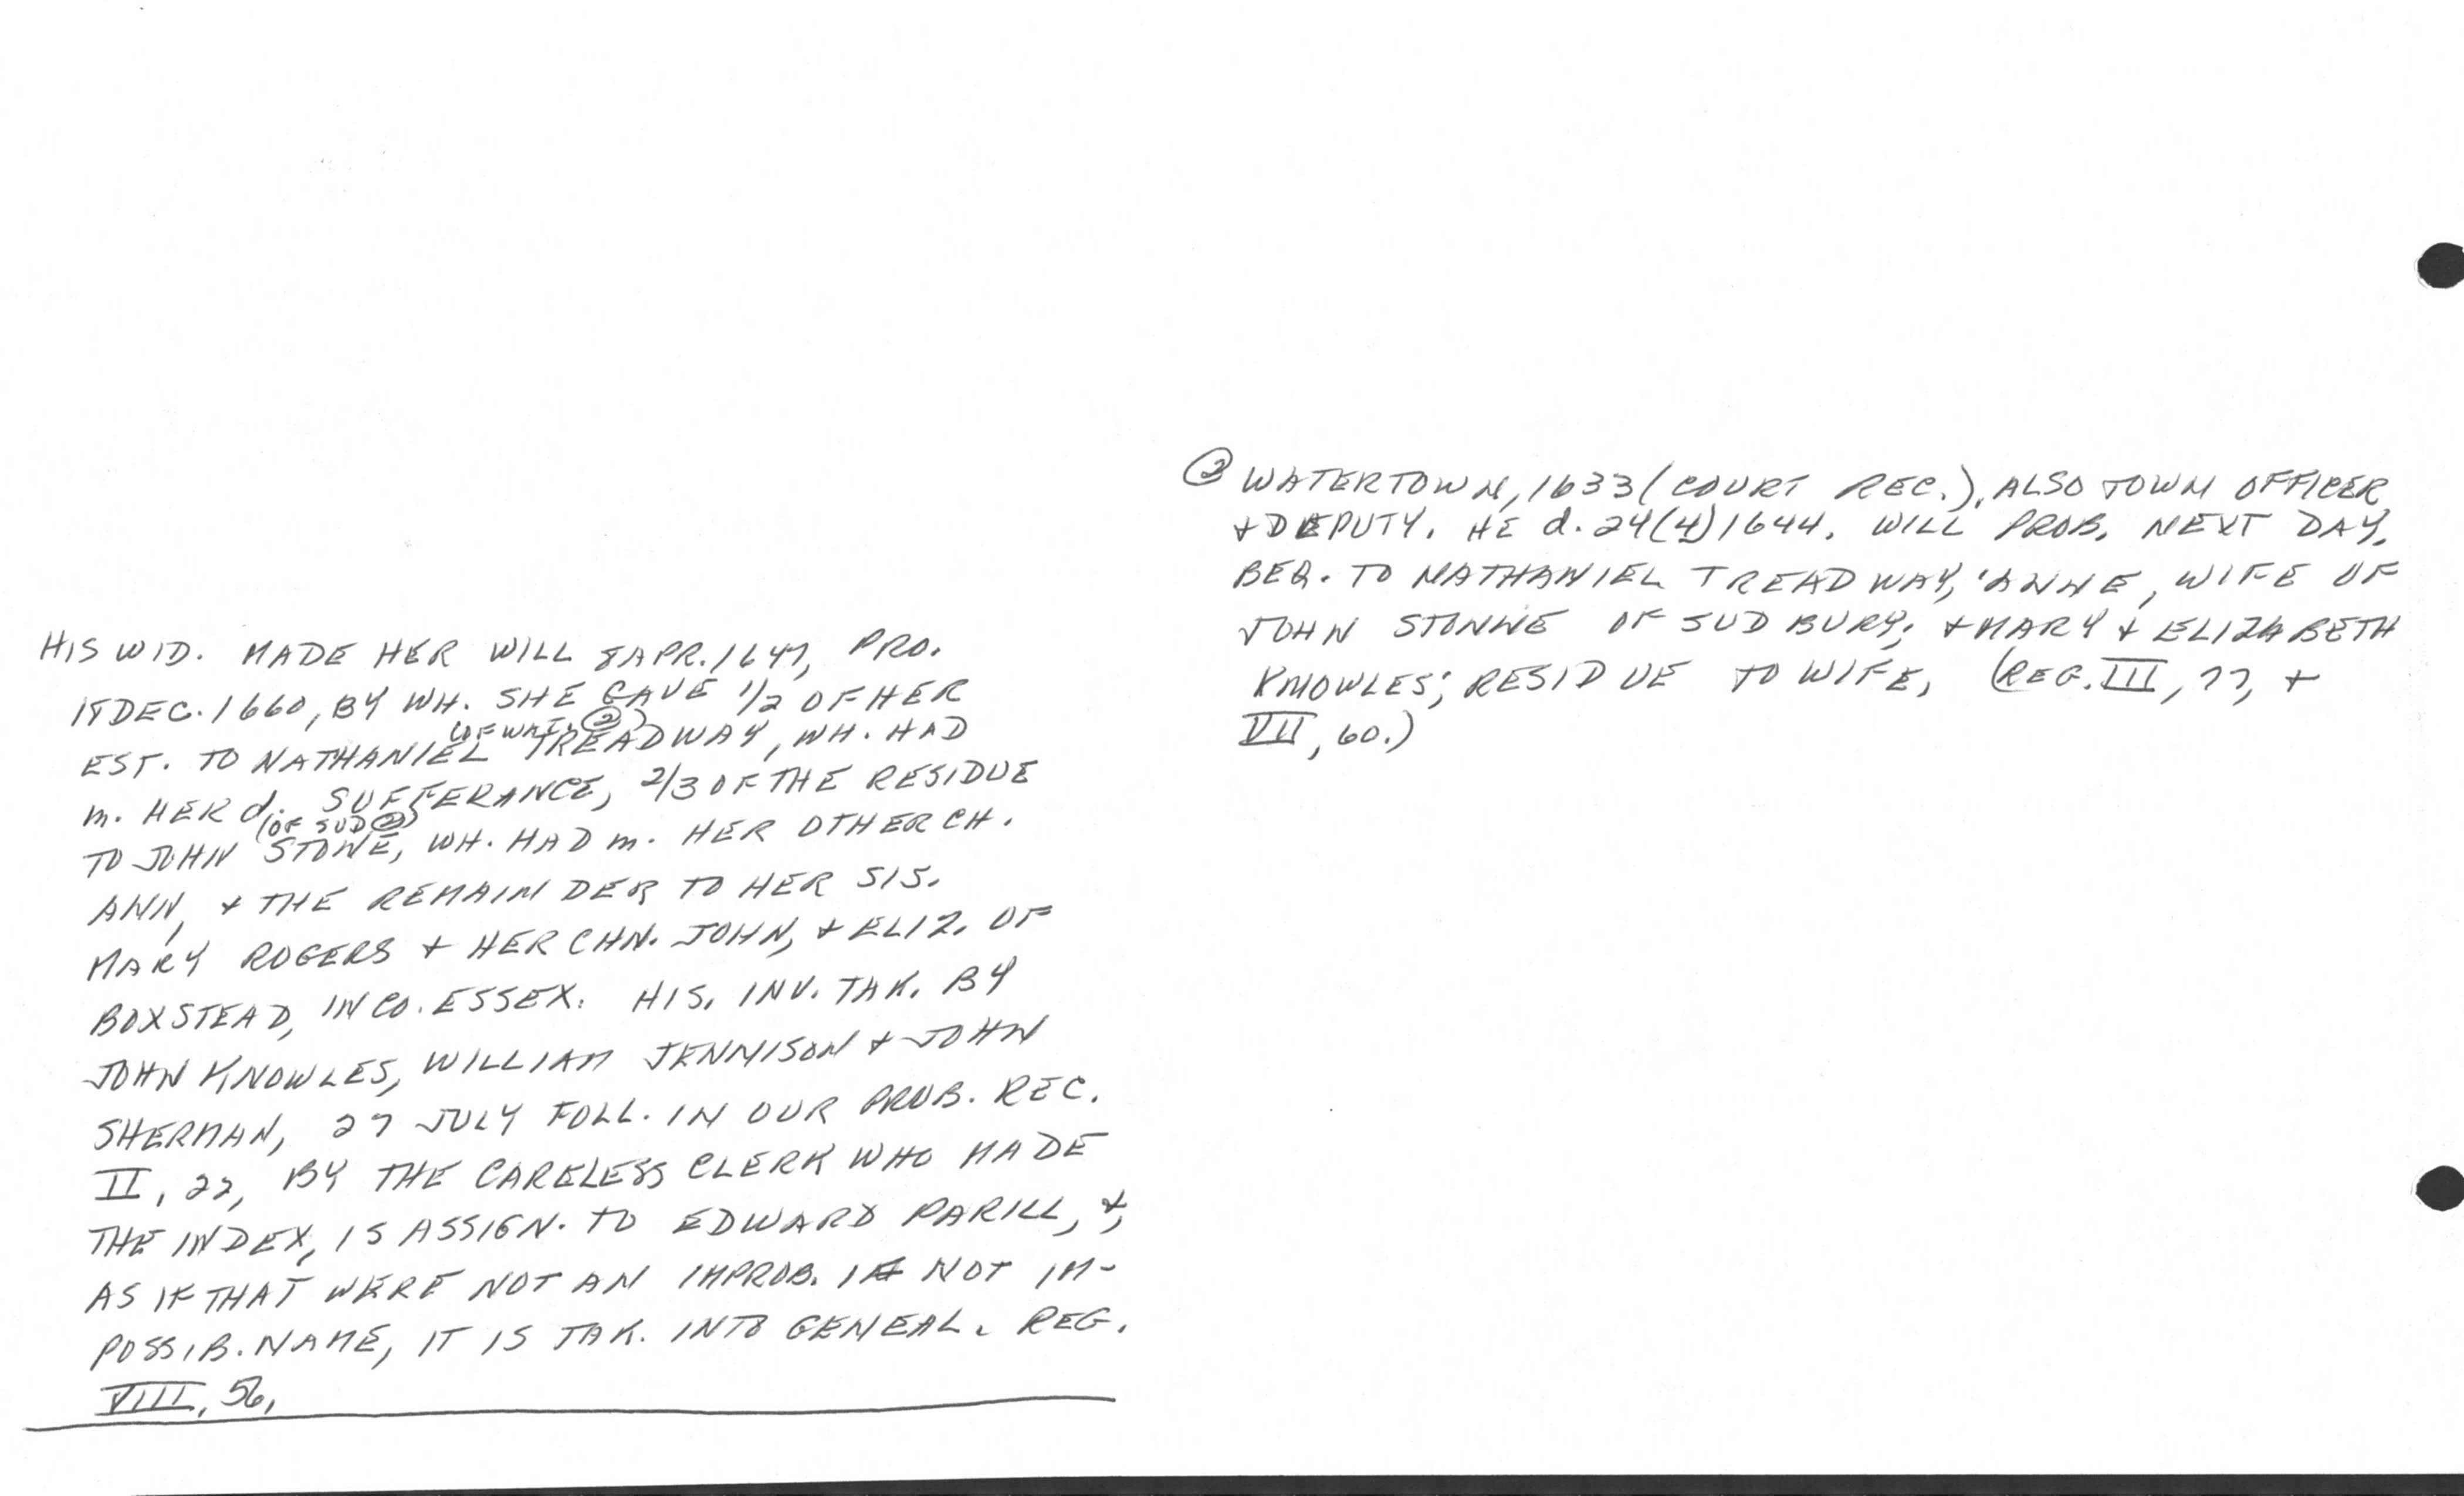 HIS WID. MADE HER WILL 8 APR. 1647, PRO.
15 DEC. 1660, BY WH. SHE GAVE 1/2 OF HER
(OF WAT. ②)
EST. TO NATHANIEL TREADWAY, WH. HAD
m. HER d. SUFFERANCE, 2/3 OF THE RESIDUE
(OF SUD ②)
TO JOHN STONE, WH. HAD m. HER OTHER CH.
ANN, + THE REMAINDER TO HER SIS.
MARY ROGERS + HER CHN. JOHN, + ELIZ. OF
BOXSTEAD, IN CO. ESSEX. HIS. INV. TAK. BY
JOHN KNOWLES, WILLIAM JENNISON + JOHN
SHERMAN, 27 JULY FOLL. IN OUR PROB. REC.
II, 22, BY THE CARELESS CLERK WHO MADE
THE INDEX, IS ASSIGN. TO EDWARD PARILL, +,
AS IF THAT WERE NOT AN IMPROB. IF NOT IM-
POSSIB. NAME, IT IS TAK. INTO GENEAL. REG.
VIII, 56,
② WATERTOWN, 1633 (COURT REC.). ALSO TOWN OFFICER
+ DEPUTY. HE d. 24(4)1644. WILL PROB. NEXT DAY.
BEQ. TO NATHANIEL TREADWAY, 'ANNE, WIFE OF
JOHN STONNE OF SUDBURY; + MARY + ELIZABETH
KNOWLES; RESIDUE TO WIFE, (REG. III, 77, +
VII, 60.)